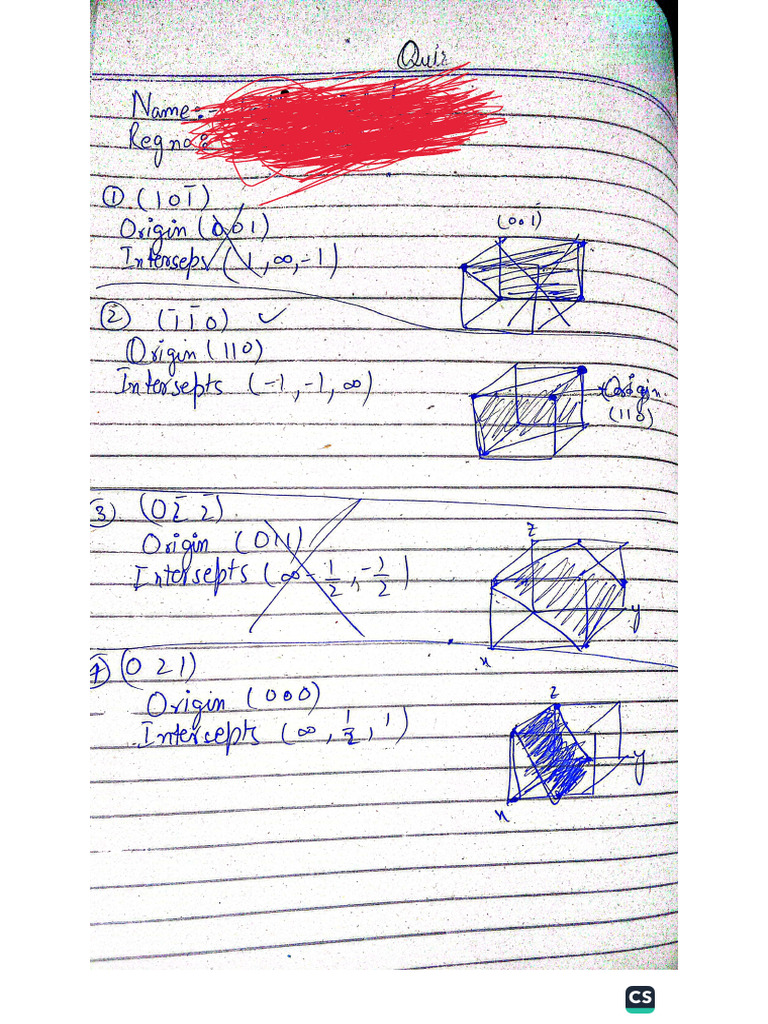 Quiz
Name:-
Reg no:
① (1 0 1̄)
Origin (0 0 1)
Interseps (1, ∞, -1)
(0 0 1̄)
② (1̄ 1̄ 0) ✓
Origin (110)
Intersepts (-1, -1, ∞)
Origin
(110)
3) (0 2̄ 2̄)
Origin (011)
Intersepts (∞ -1/2, -1/2)
z
y
x
(0 2 1)
Origin (000)
Intersepts (∞, 1/2, 1)
z
y
x
CS